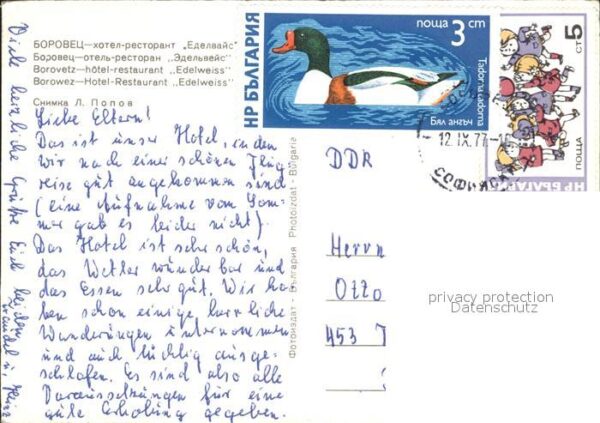 БОРОВЕЦ—хотел-ресторант „Еделвайс"
Боровец—отель-ресторан „Эдельвейс"
Borovetz—hôtel-restaurant „Edelweiss"
Borowez—Hotel-Restaurant „Edelweiss"
Снимка Л. Попов
Liebe Eltern!
Das ist unser Hotel, in dem
wir nach einer schönen Flug
reise gut angekommen sind
(eine Aufnahme vom Som-
mer gab es leider nicht).
Das Hotel ist sehr schön,
das Wetter wunderbar und
das Essen sehr gut. Wir ha
ben schon einige herrliche
Wanderungen unternommen
und auch tüchtig ausge-
schlafen. Es sind also alle
Voraussetzungen für eine
gute Erholung gegeben.
Viele herzliche Grüße Euch beiden
u. Heinz
Фотоиздат - България Photoizdat - Bulgaria
НР БЪЛГАРИЯ
поща 3 ст
Tadorna tadorna
Бял ангъч
5 ст
ПОЩА
НР БЪЛГАРИЯ
12.IX.77
СОФИЯ
DDR
Herrn
Otto
453
privacy protection
Datenschutz